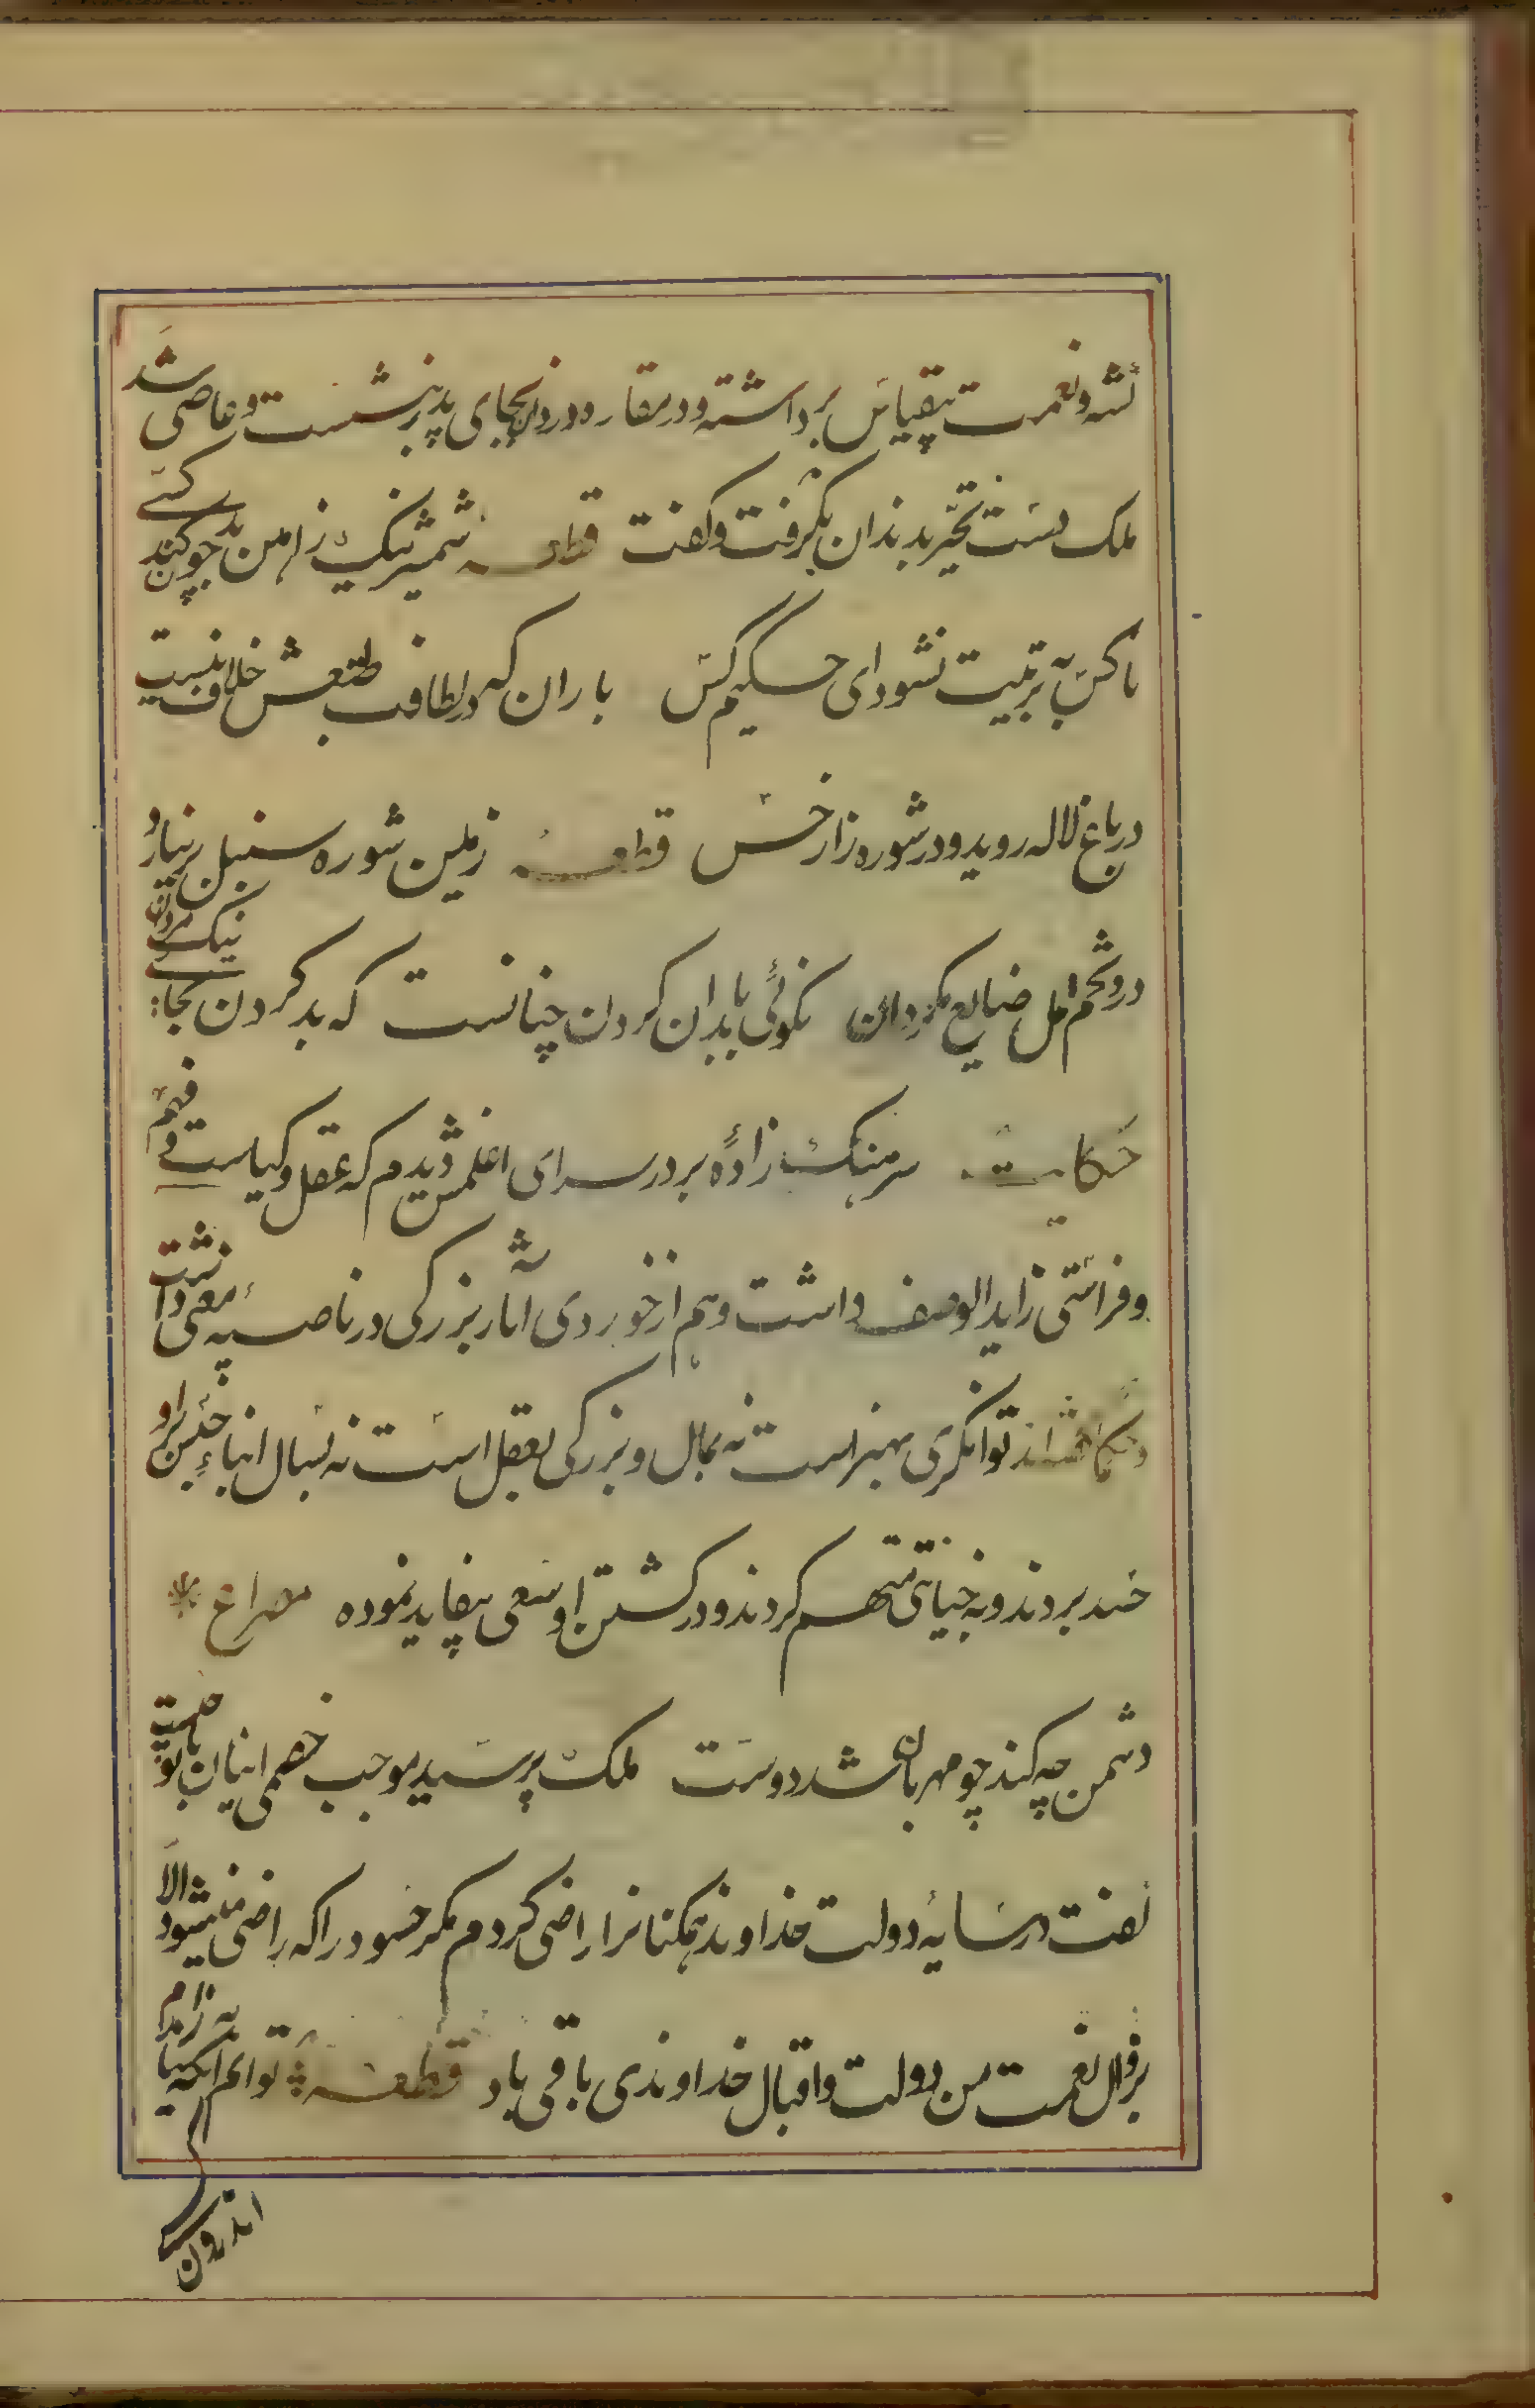 شد و نعمت بیقیاس برداشته و در مغاره دزدان بجای پدر نشست و عاصی شد
ملک دست تحیر بدندان بگرفت و گفت قطعه شمشیر نیک ز آهن بد چون کند کسی
ناکس به تربیت نشود ای حکیم کس باران که در لطافت طبعش خلاف نیست
در باغ لاله روید و در شوره زار خس قطعه زمین شوره سنبل بر نیارد
درو تخم امل ضایع مگردان نکوئی با بدان کردن چنانست که بد کردن بجای نیک مردان
حکایت سرهنگ زاده بر در سرای اغلمش دیدم که عقل و کیاست و فهم
و فراستی زاید الوصف داشت و هم از خوردی آثار بزرگی در ناصیه معنی داشت
توانگری بهنر است نه بمال و بزرگی بعقل است نه بسال ابناء جنس او برو
حسد بردند و به خیانتی متهم کردند و در کشتن او سعی بیفایده نموده مصراع
دشمن چه کند چو مهربان باشد دوست ملک پرسید موجب خصمی اینان با تو چیست
گفت در سایه دولت خداوند همگنانرا راضی کردم مگر حسود را که راضی نمیشود الا
بزوال نعمت من دولت و اقبال خداوندی باقی باد قطعه توانم آنکه نیازارم
اندرون کسی